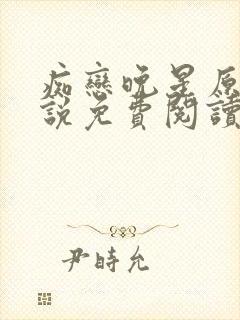 痴戀晚星原
說免費閱讀
尹時允